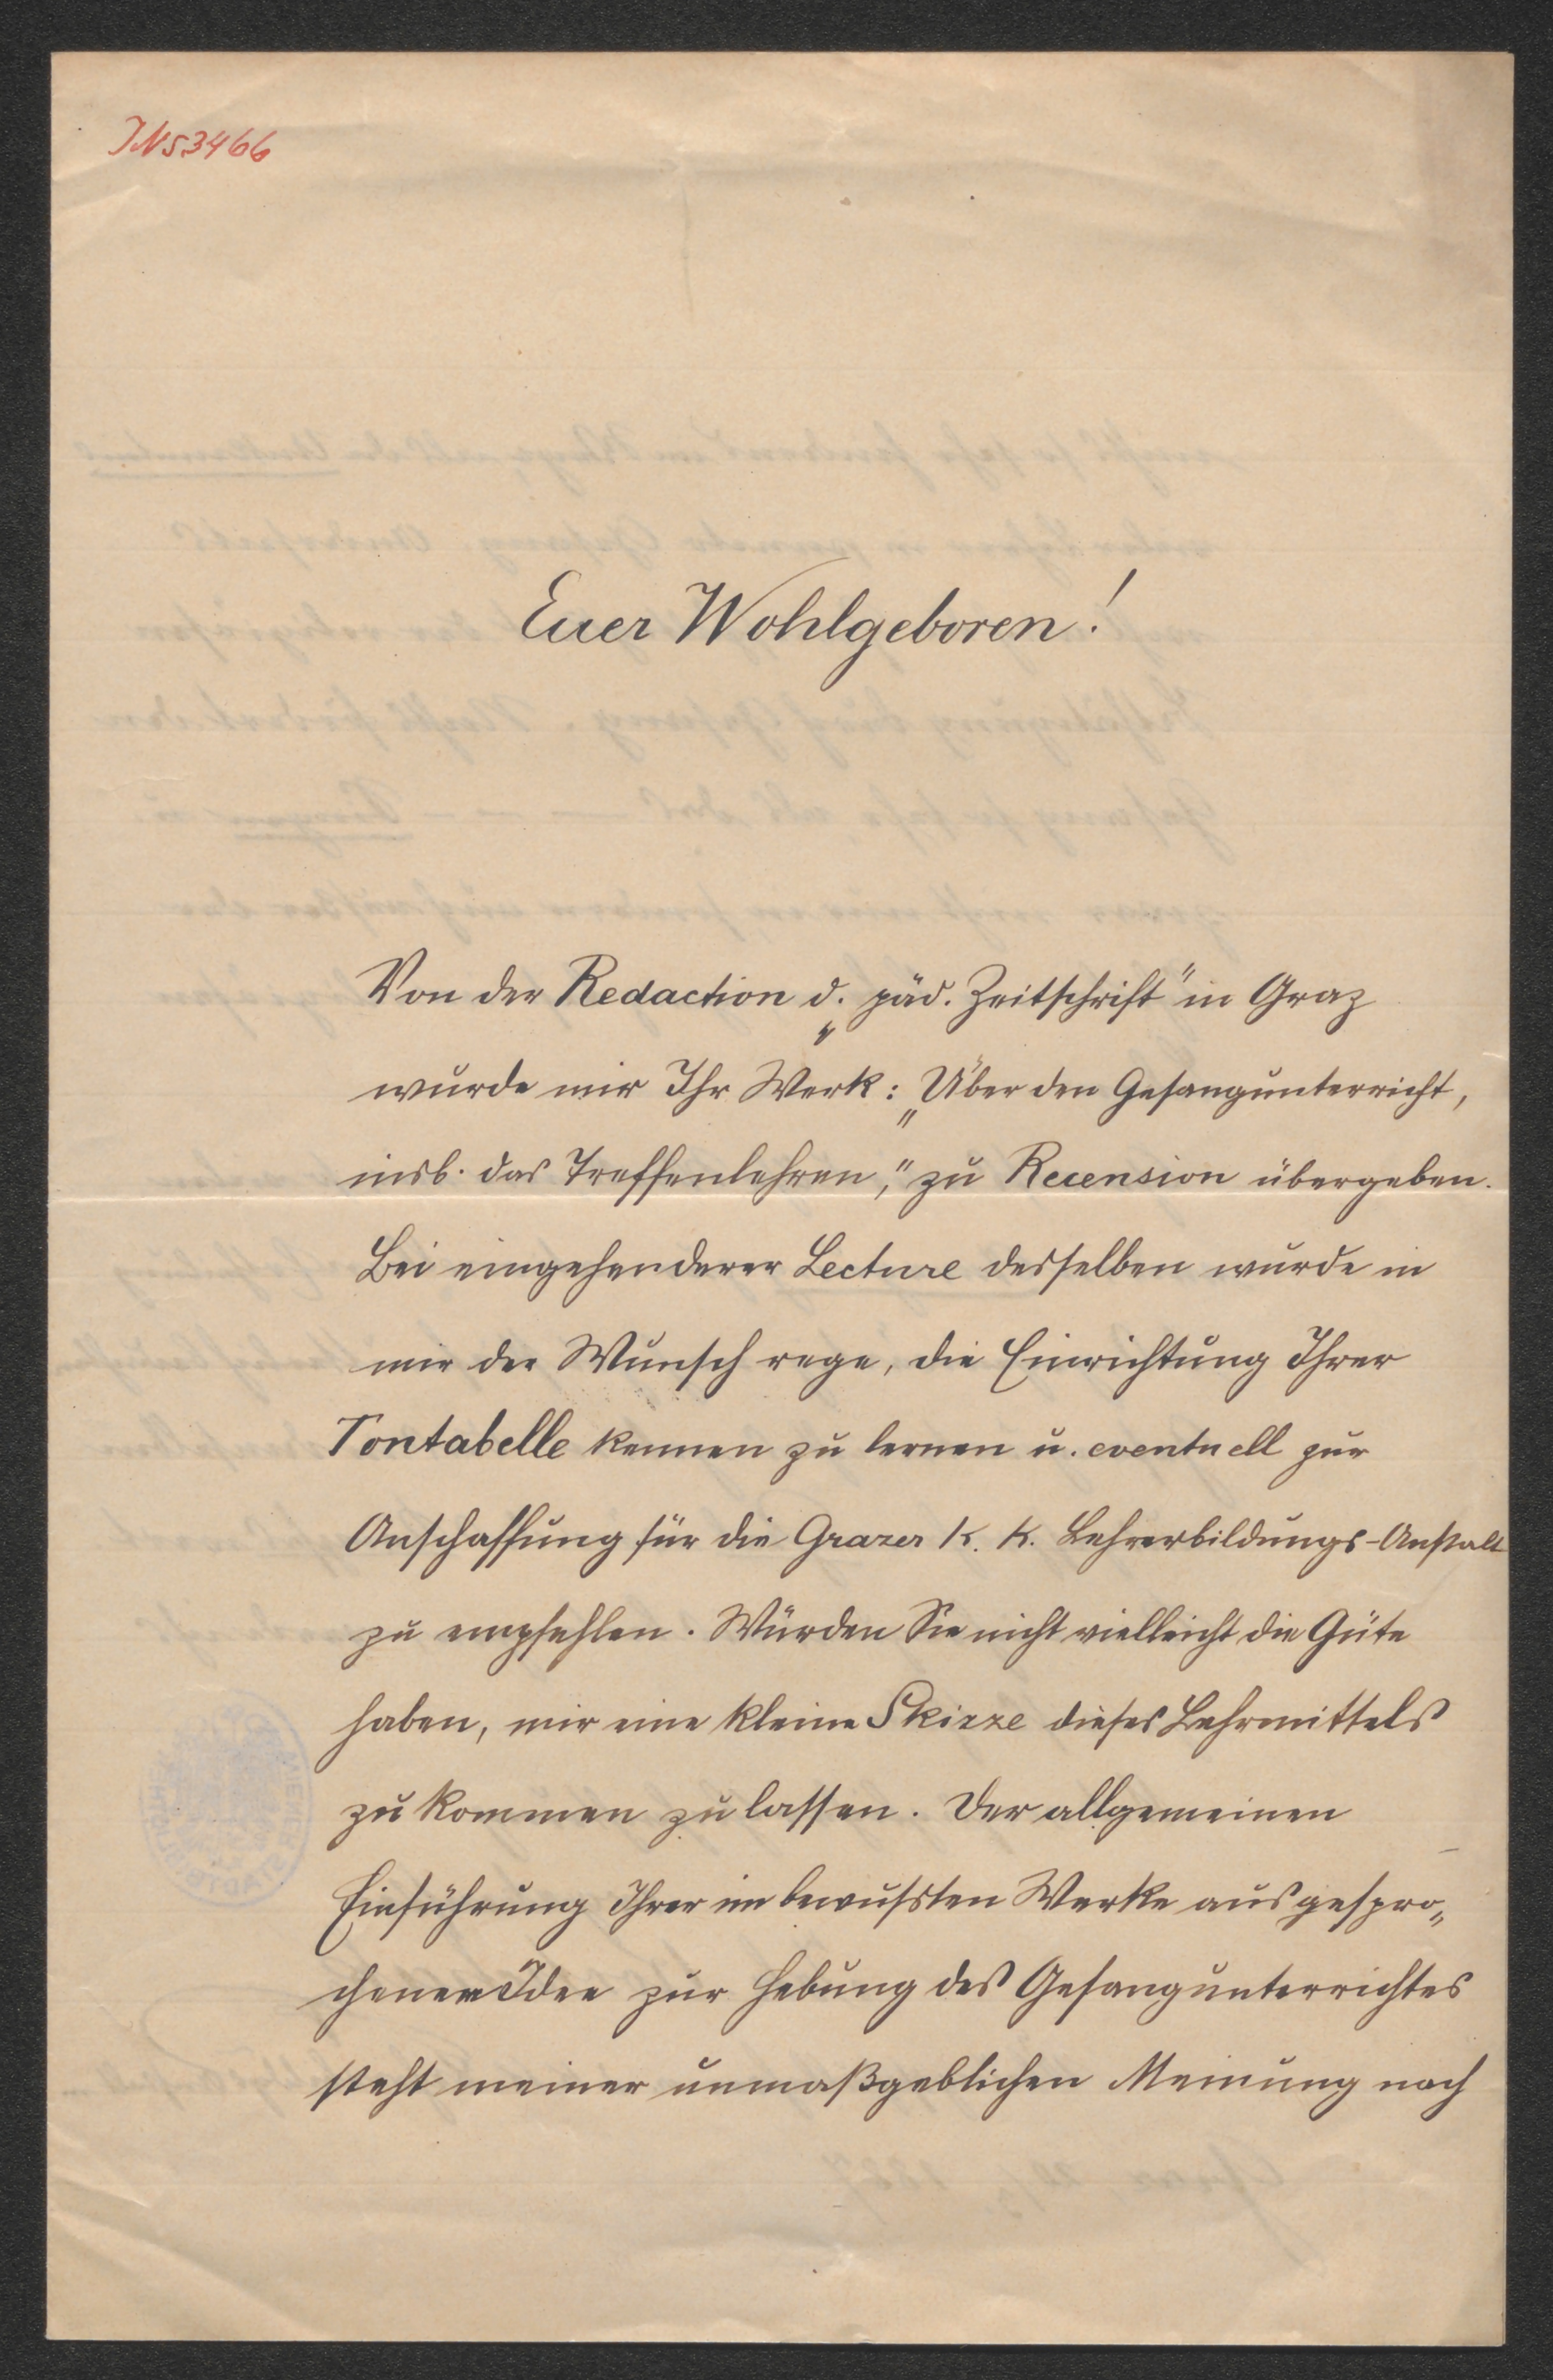 JN 53466
Euer Wohlgeboren!
Von der Redaction d. „päd. Zeitschrift" in Graz
wurde mir Ihr Werk: „Über den Gesangunterricht,
insb. das Treffenlehren," zu Recension übergeben.
Bei eingehenderer Lecture desselben wurde in
mir der Wunsch rege, die Einrichtung Ihrer
Tontabelle kennen zu lernen u. eventuell zur
Anschaffung für die Grazer K. K. Lehrerbildungs-Anstalt
zu empfehlen. Würden Sie nicht vielleicht die Güte
haben, mir eine kleine Skizze dieses Lehrmittels
zu kommen zu lassen. Der allgemeinen
Einführung Ihrer im bewußten Werke ausgespro„
chenen Idee zur Hebung des Gesangunterrichtes
steht meiner unmaßgeblichen Meinung nach